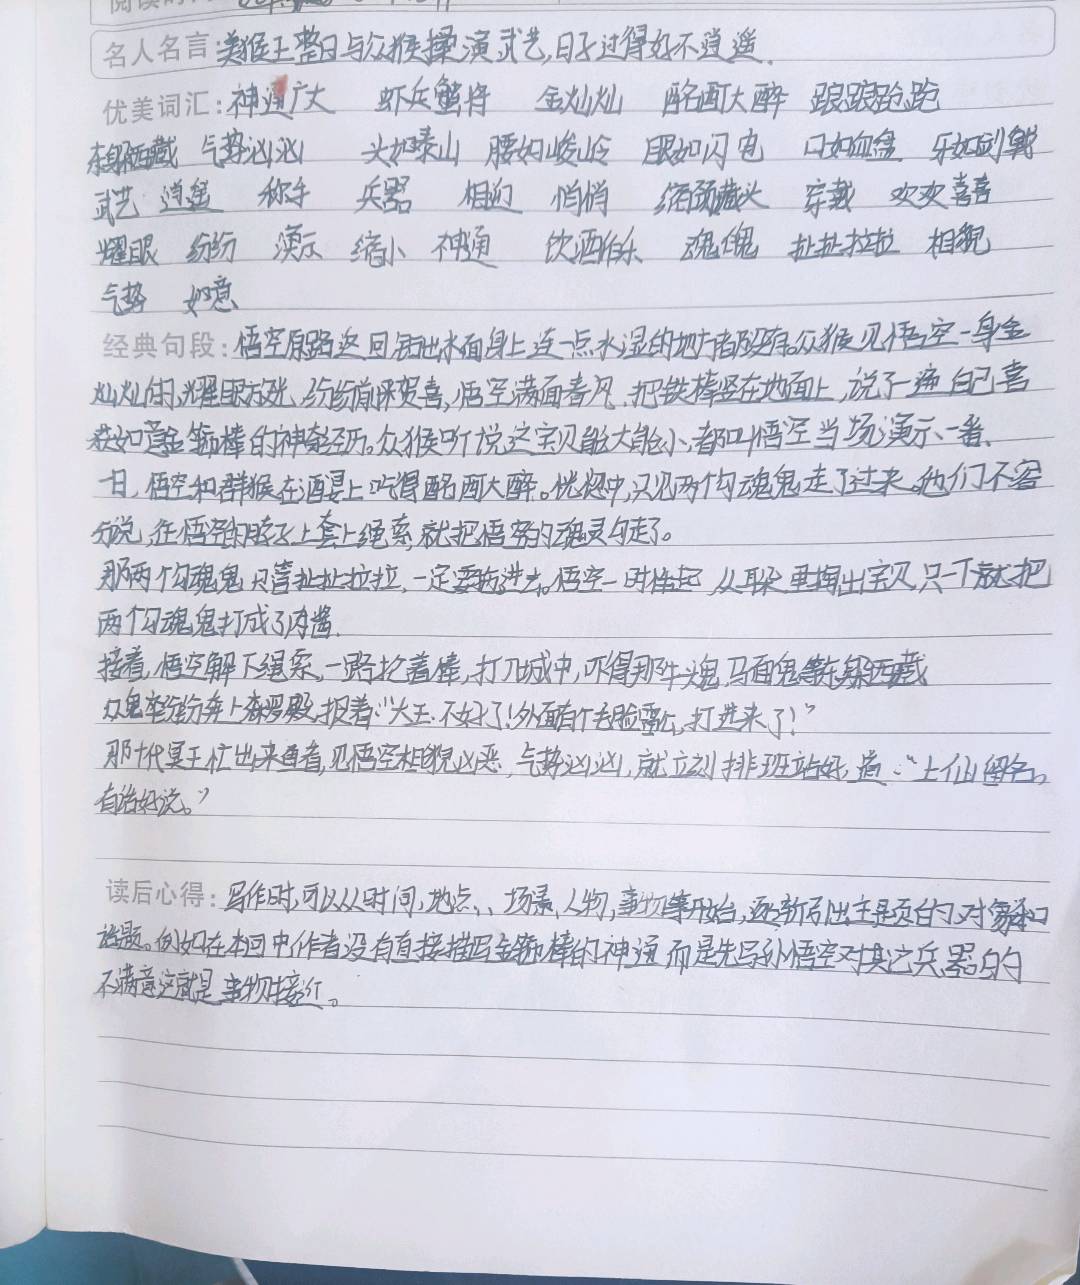 名人名言:美猴王整日与众猴操演武艺,日子过得好不逍遥.
优美词汇:神通广大 虾兵蟹将 金灿灿 酩酊大醉 踉踉跄跄
东躲西藏 气势汹汹 头如泰山 腰如峻岭 眼如闪电 口如血盆 牙如剑戟
武艺 逍遥 称手 兵器 相迎 悄悄 缩颈藏头 穿戴 欢欢喜喜
耀眼 纷纷 演示 缩小 神通 饮酒作乐 魂魄 扯扯拉拉 相貌
气势 如意
经典句段:悟空原路返回钻出水面身上连一点水湿的地方都没有。众猴见悟空一身金
灿灿的,耀眼放光,纷纷前来贺喜,悟空满面春风.把铁棒竖在地面上,说了一遍自己喜
获如意金箍棒的神奇经历。众猴听说这宝贝能大能小,都叫悟空当场演示一番.
一日,悟空和群猴在酒宴上吃得酩酊大醉。恍惚中,只见两个勾魂鬼走了过来。他们不容
分说,在悟空的脖子上套上绳索,就把悟空的魂灵勾走了。
那两个勾魂鬼只管扯扯拉拉,一定要拖进去。悟空一时性起,从耳朵里掏出宝贝,只一下就把
两个勾魂鬼打成了肉酱.
接着,悟空解下绳索,一路抡着棒,打入城中,吓得那牛头鬼、马面鬼等东躲西藏
众鬼卒纷纷奔上森罗殿,报着:“大王.不好了!外面有个毛脸雷公,打进来了!”
那十代冥王忙出来查看,见悟空相貌凶恶,气势汹汹,就立刻排班站好,道:“上仙留名。
有话好说。”
读后心得:写作时,可以从时间,地点,、场景,人物,事物等开始,逐渐引出主题的对象和
话题。例如在本回中,作者没有直接描写金箍棒的神通而是先写孙悟空对其它兵器的
不满意这就是事物接近。